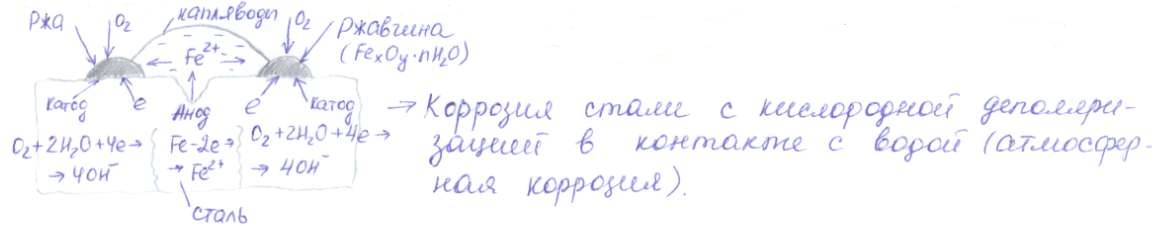 Ржа O₂ капля воды O₂ Ржавчина
(FeₓOᵧ·nH₂O)
Fe²⁺
катод e Анод e катод
O₂+2H₂O+4e→ Fe-2e→ O₂+2H₂O+4e→
→ 4OH⁻ → Fe²⁺ → 4OH⁻
сталь
→ Коррозия стали с кислородной деполяри-
зацией в контакте с водой (атмосфер-
ная коррозия).